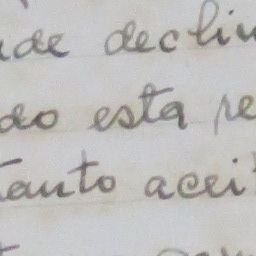 de declin
do esta re
tanto acei